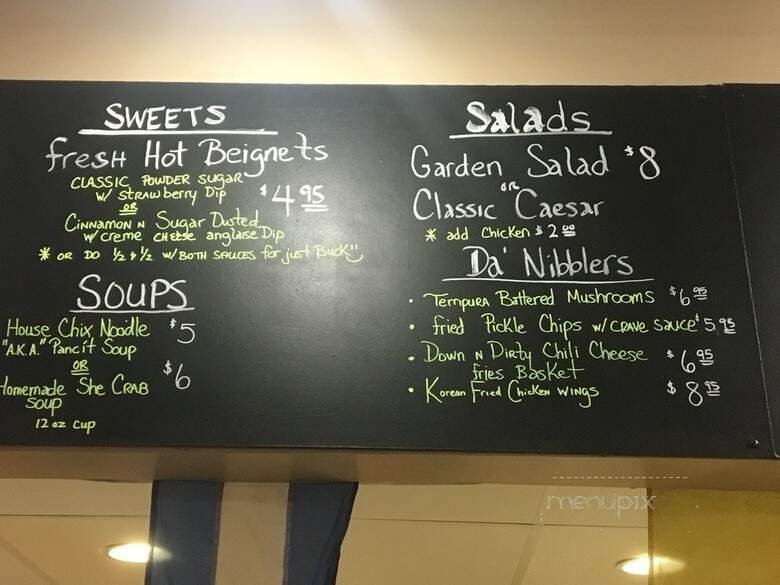 SWEETS
fresh Hot Beignets
CLASSIC POWDER SUGAR
W/ Strawberry Dip
OR
$4.95
Cinnamon N Sugar Dusted
W/ creme cheese anglaise Dip
* OR DO 1/2 & 1/2 W/ BOTH SAUCES for just Buck
SOUPS
House Chix Noodle $5
"A.K.A." Pancit Soup
OR
Homemade She CRAB $6
Soup
12 oz cup
Salads
Garden Salad $8
OR
Classic Caesar
* add Chicken $2.00
Da' Nibblers
• Tempura Battered Mushrooms $6.95
• fried Pickle Chips w/ CRAVE sauce $5.95
• Down N Dirty Chili Cheese $6.95
fries Basket
• Korean Fried Chicken Wings $8.95
menupix